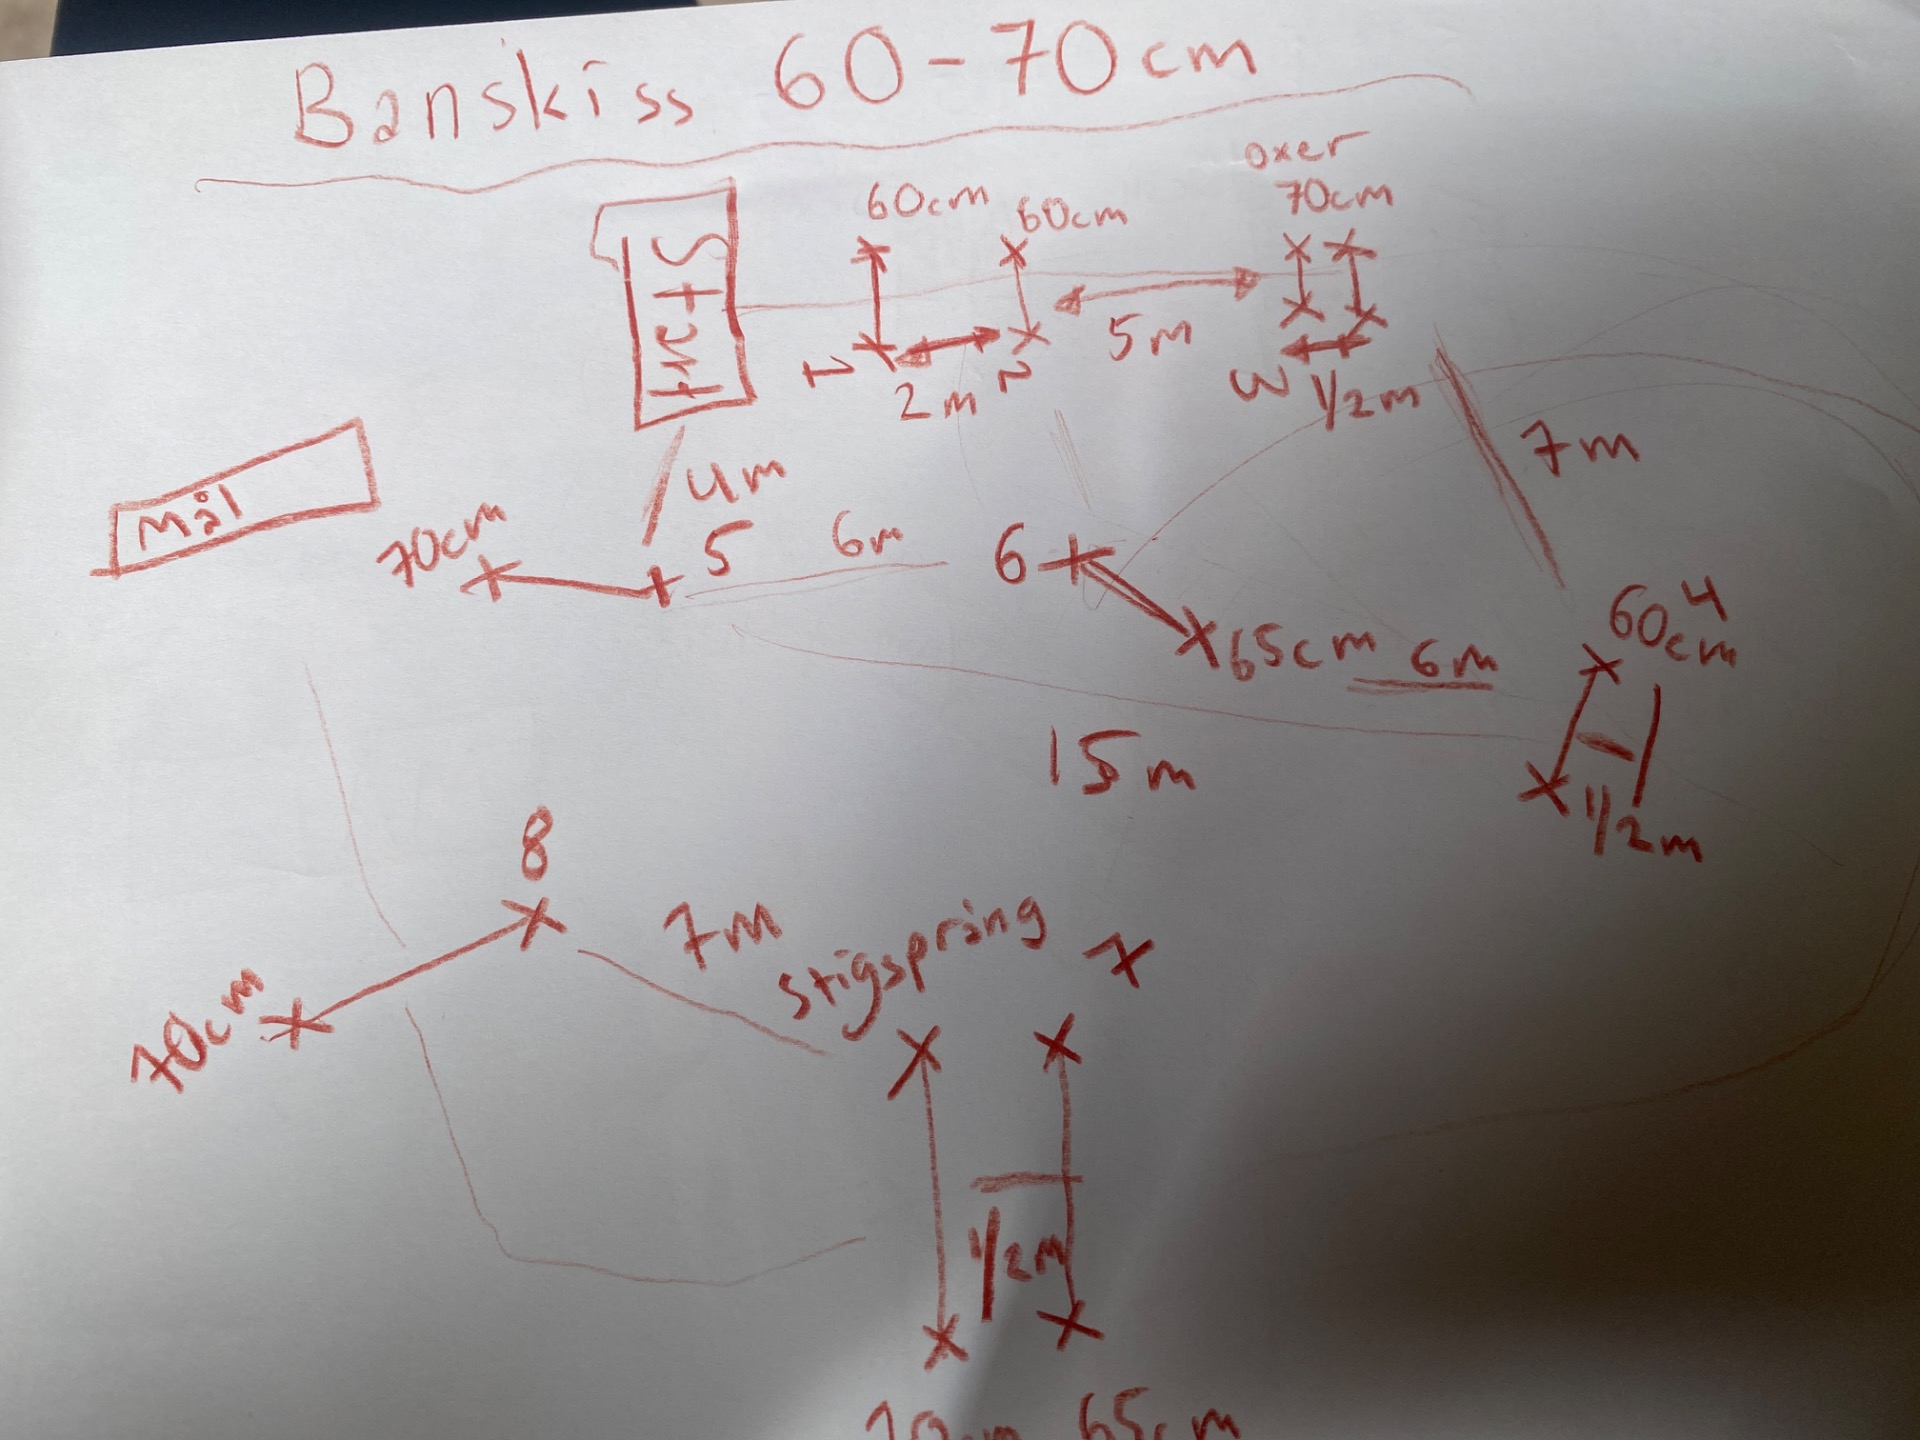 Banskiss 60-70cm
oxer
60cm 60cm 70cm
Start
5m
1 2m 2 3 1/2m
7m
mål
4m
70cm 5 6m 6
60cm 4
65cm 6m
15m
1/2m
8
7m stigspring 7
70cm
1/2m
65cm